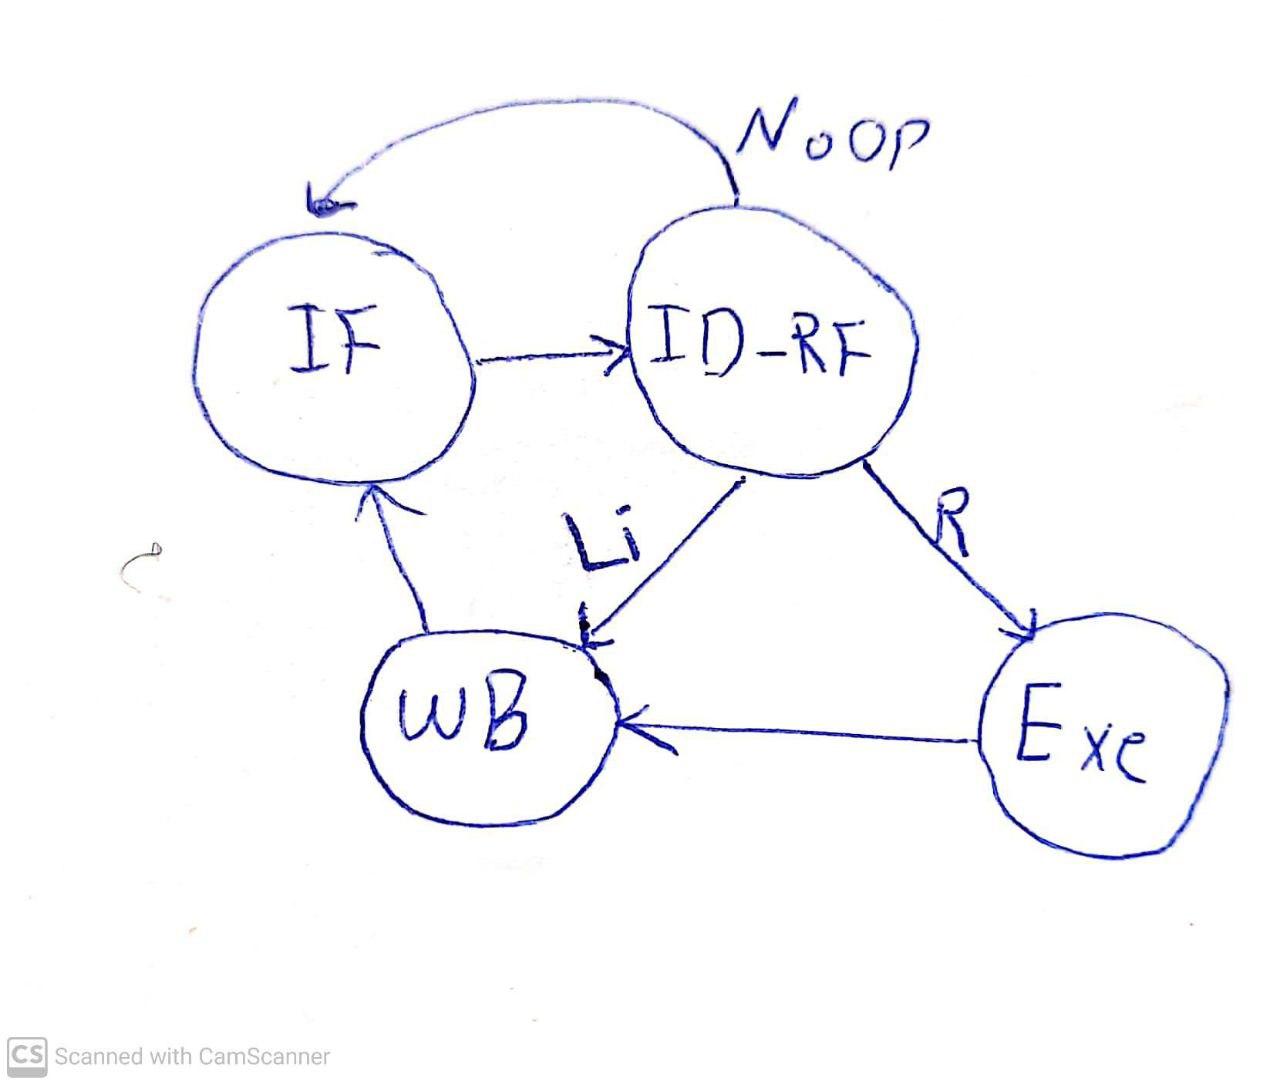 NoOP
IF
ID-RF
Li
R
WB
Exe
CS Scanned with CamScanner